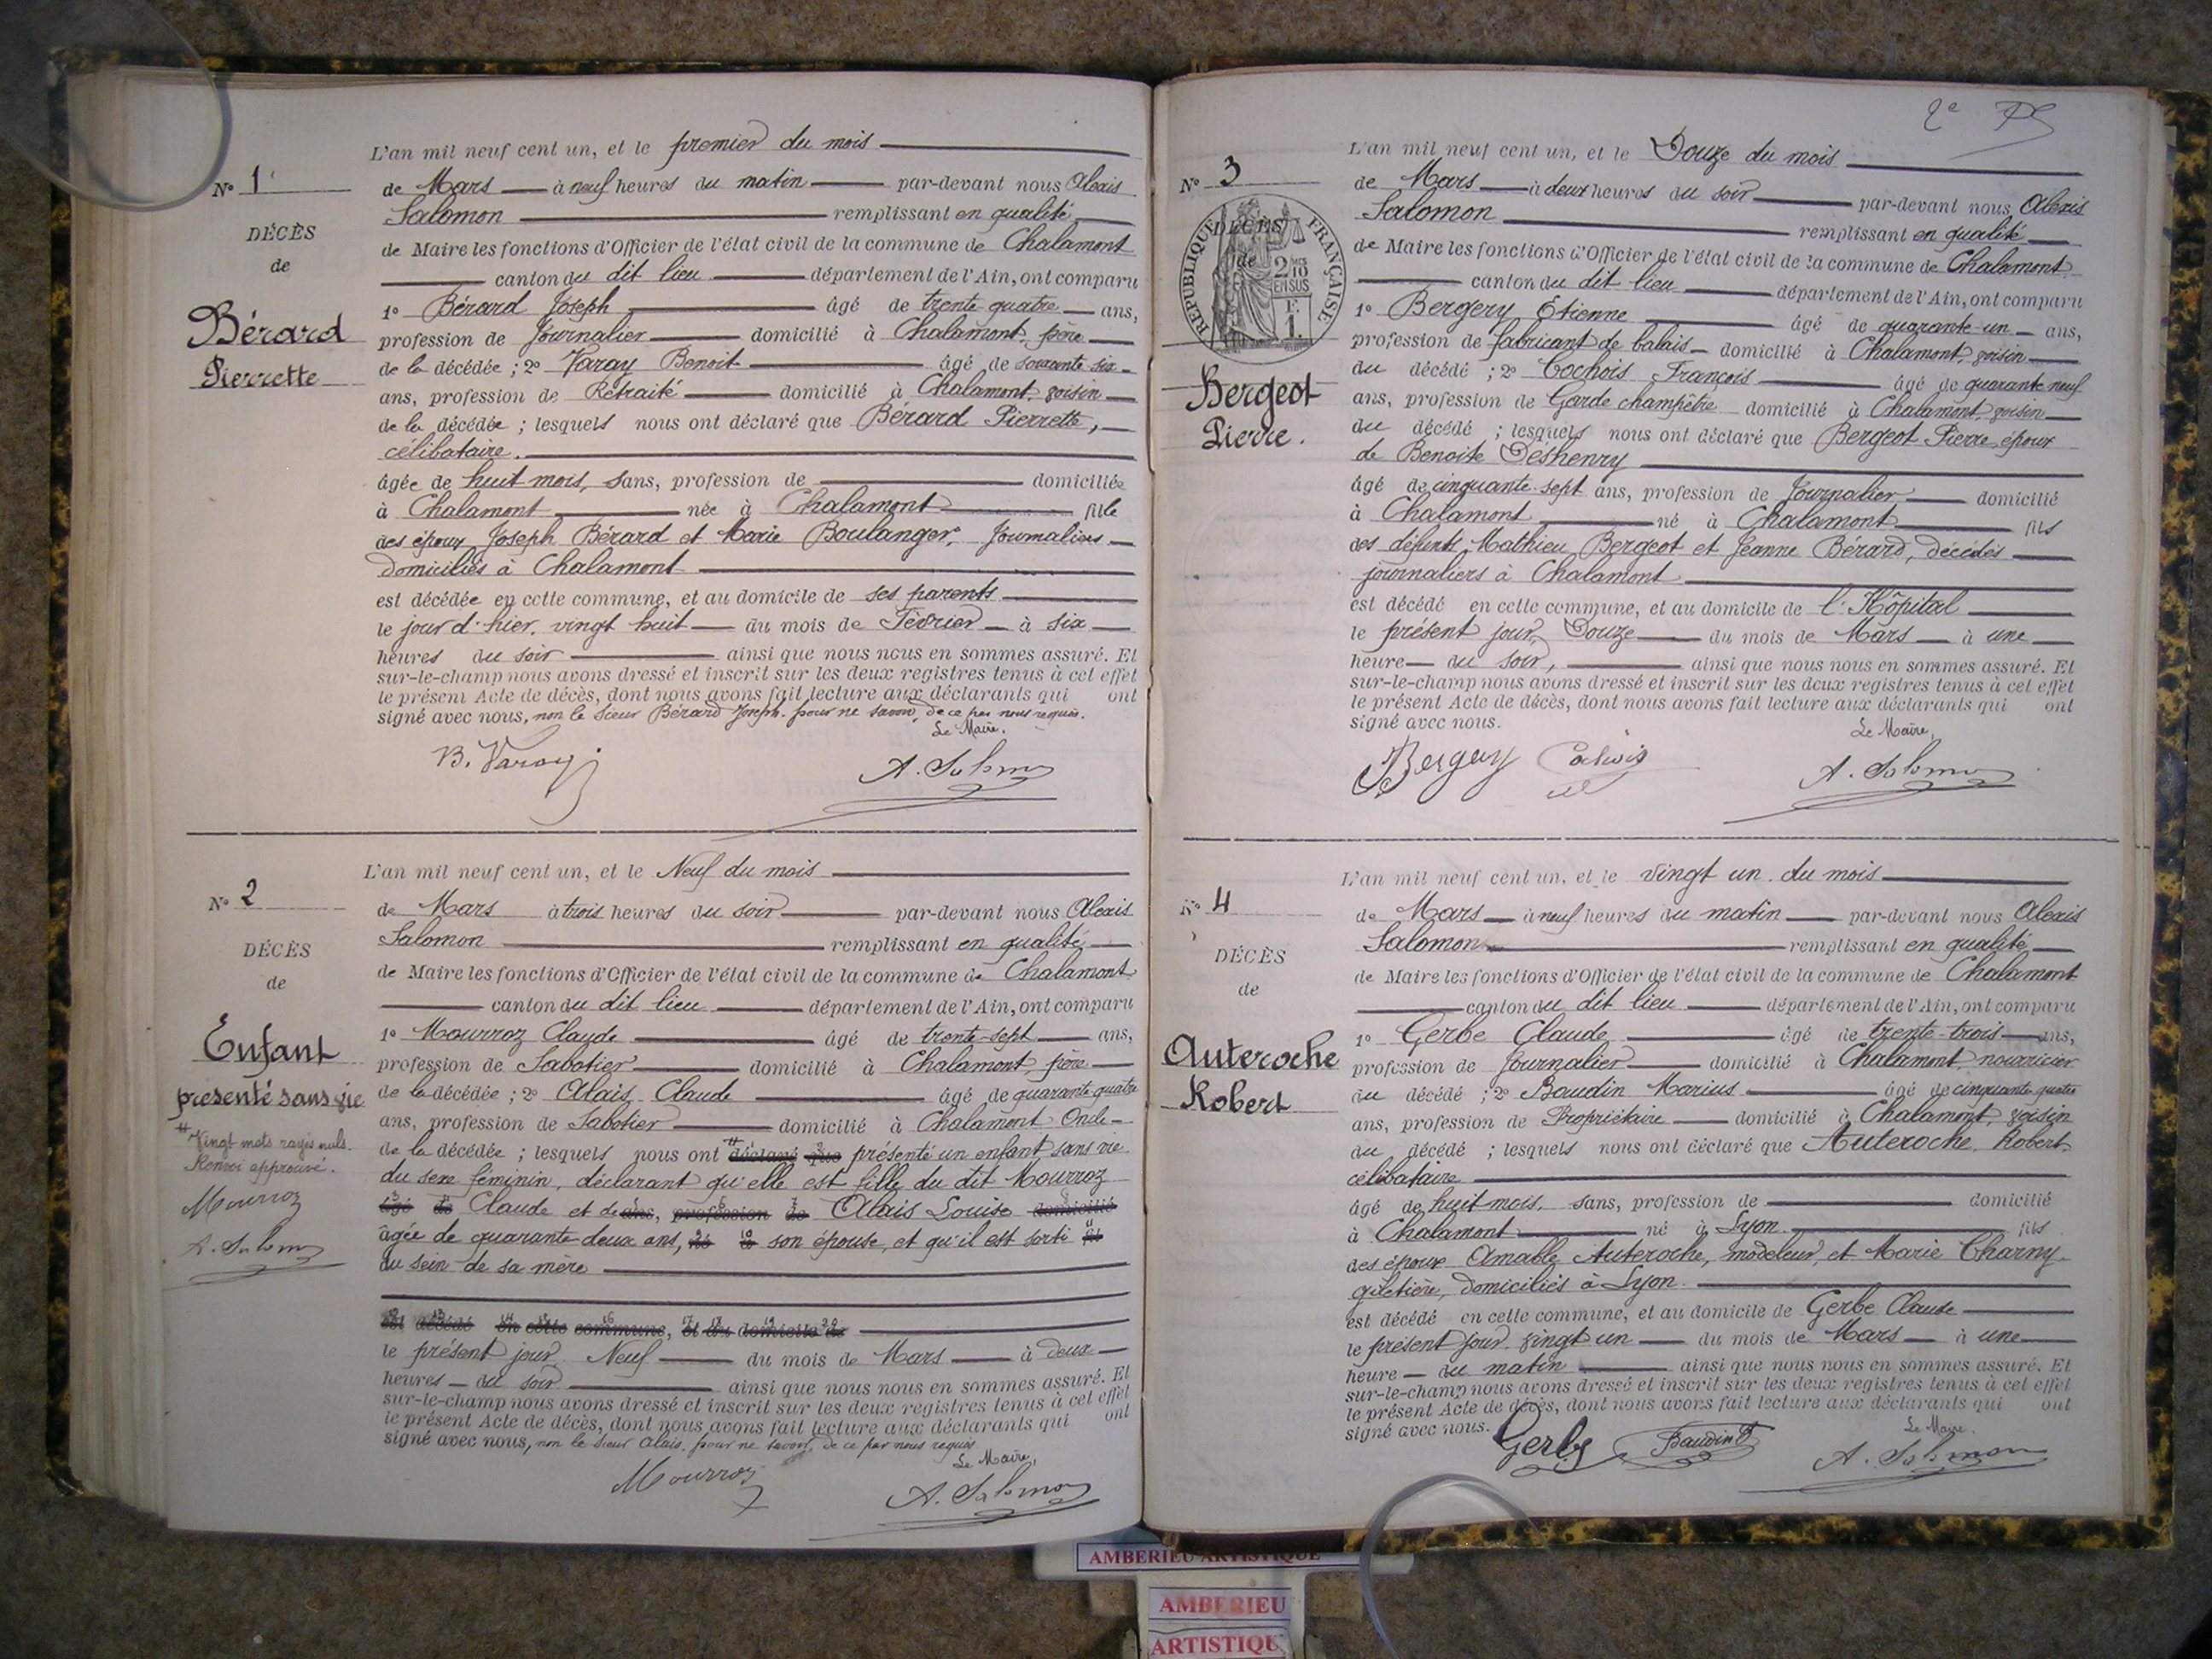 L'an mil neuf cent un, et le premier du mois
N° 1
de Mars à neuf heures du matin par-devant nous Alexis
Salomon remplissant en qualité
DÉCÈS
de Maire les fonctions d'Officier de l'état civil de la commune de Chalamont
de
canton du dit lieu département de l'Ain, ont comparu
Bérard
Pierrette
1° Bérard Joseph âgé de trente quatre ans,
profession de Journalier domicilié à Chalamont, père
de la décédée ; 2° Varay Benoit âgé de soixante six
ans, profession de Retraité domicilié à Chalamont, voisin
de la décédée ; lesquels nous ont déclaré que Bérard Pierrette,
célibataire.
âgée de huit mois, sans, profession de domiciliée
à Chalamont née à Chalamont fille
des époux Joseph Bérard et Marie Boulanger, Journaliers
domiciliés à Chalamont
est décédée en cette commune, et au domicile de ses parents
le jour d'hier, vingt huit du mois de Février à six
heures du soir ainsi que nous nous en sommes assuré. Et
sur-le-champ nous avons dressé et inscrit sur les deux registres tenus à cet effet
le présent Acte de décès, dont nous avons fait lecture aux déclarants qui ont
signé avec nous, non le sieur Bérard Joseph. pour ne savoir, de ce par nous requis.
Le Maire.
B. Varay A. Salomon
L'an mil neuf cent un, et le Neuf du mois
N° 2
de Mars à trois heures du soir par-devant nous Alexis
Salomon remplissant en qualité
DÉCÈS
de Maire les fonctions d'Officier de l'état civil de la commune de Chalamont
de
canton du dit lieu département de l'Ain, ont comparu
Enfant
présenté sans vie
1° Mourroz Claude âgé de trente-sept ans,
profession de Sabotier domicilié à Chalamont père
de la décédée ; 2° Alais Claude âgé de quarante quatre
ans, profession de Sabotier domicilié à Chalamont Oncle
# Vingt mots rayés nuls.
Renvoi approuvé.
Mourroz
A. Salomon
de la décédée ; lesquels nous ont # déclaré que présenté un enfant sans vie
du sexe féminin, déclarant qu'elle est fille du dit Mourroz
âgé de Claude et de ans, profession de Alais Louise domicilié
âgée de quarante deux ans, né à son épouse, et qu'il est sorti
du sein de sa mère
est décédé en cette commune, et au domicile de
le présent jour Neuf du mois de Mars à deux
heures du soir ainsi que nous nous en sommes assuré. Et
sur-le-champ nous avons dressé et inscrit sur les deux registres tenus à cet effet
le présent Acte de décès, dont nous avons fait lecture aux déclarants qui ont
signé avec nous, non le sieur Alais. pour ne savoir, de ce par nous requis
Le Maire,
Mourroz A. Salomon
2e
L'an mil neuf cent un, et le Douze du mois
N° 3
de Mars à deux heures du soir par-devant nous Alexis
Salomon remplissant en qualité
DÉCÈS
de
RÉPUBLIQUE FRANÇAISE
2 10
EN SUS
1 F.
de Maire les fonctions d'Officier de l'état civil de la commune de Chalamont
canton du dit lieu département de l'Ain, ont comparu
1° Bergery Etienne âgé de quarante-un ans,
profession de fabricant de balais domicilié à Chalamont, voisin
Bergeot
Pierre.
du décédé ; 2° Cochois François âgé de quarante neuf
ans, profession de Garde champêtre domicilié à Chalamont, voisin
du décédé ; lesquels nous ont déclaré que Bergeot Pierre époux
de Benoite Deshenry
âgé de cinquante-sept ans, profession de Journalier domicilié
à Chalamont né à Chalamont fils
des défunts Mathieu Bergeot et Jeanne Bérard, décédés
journaliers à Chalamont
est décédé en cette commune, et au domicile de l'Hôpital
le présent jour, Douze du mois de Mars à une
heure du soir, ainsi que nous nous en sommes assuré. Et
sur-le-champ nous avons dressé et inscrit sur les deux registres tenus à cet effet
le présent Acte de décès, dont nous avons fait lecture aux déclarants qui ont
signé avec nous.
Le Maire,
Bergery A. Salomon
L'an mil neuf cent un, et le vingt un du mois
N° 4
de Mars à neuf heures du matin par-devant nous Alexis
Salomon remplissant en qualité
DÉCÈS
de Maire les fonctions d'Officier de l'état civil de la commune de Chalamont
de
canton du dit lieu département de l'Ain, ont comparu
Auteroche
Robert
1° Gerbe Claude âgé de trente-trois ans,
profession de Journalier domicilié à Chalamont, nourricier
du décédé ; 2° Baudin Marius âgé de cinquante quatre
ans, profession de Propriétaire domicilié à Chalamont, voisin
du décédé ; lesquels nous ont déclaré que Auteroche Robert
célibataire
âgé de huit mois, sans, profession de domicilié
à Chalamont né à Lyon. fils
des époux Amable Auteroche, modeleur, et Marie Charny
giletière, domiciliés à Lyon.
est décédé en cette commune, et au domicile de Gerbe Claude
le présent jour vingt un du mois de Mars à une
heure du matin ainsi que nous nous en sommes assuré. Et
sur-le-champ nous avons dressé et inscrit sur les deux registres tenus à cet effet
le présent Acte de décès, dont nous avons fait lecture aux déclarants qui ont
signé avec nous.
Le Maire.
Gerbe Baudin A. Salomon
AMBERIEU ARTISTIQUE
AMBERIEU
ARTISTIQU